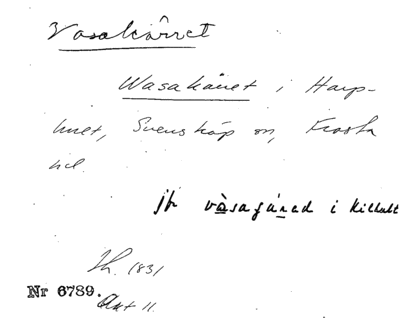 Vasakärret
Wasakäret i Harp-
hult, Svensköp sn, Frosta
hd.
jfr vàsaǥáred i Kiehult
Sk. 1831
Nr 6789. Akt 11.